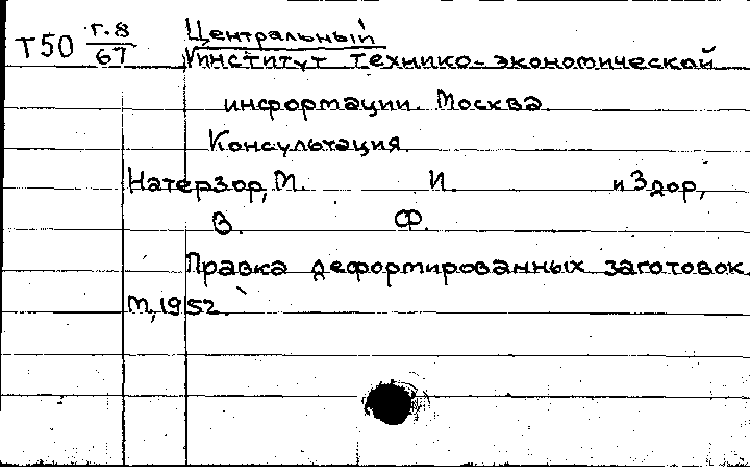 Т50 г.8/67 Центральный
Институт технико-экономической
информации. Москва.
Консультация.
Натерзор, М. И. и Здор,
В. Ф.
Правка деформированных заготовок.
М, 1952.